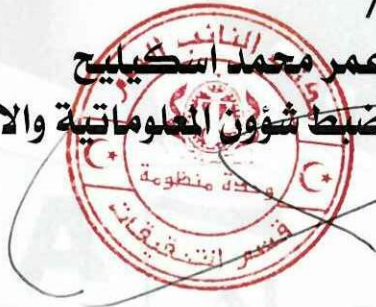 عمر محمد اسكيليح
ضبط شؤون المعلوماتية والا
النائب
وحدة منظومة
قسم التحقيقات